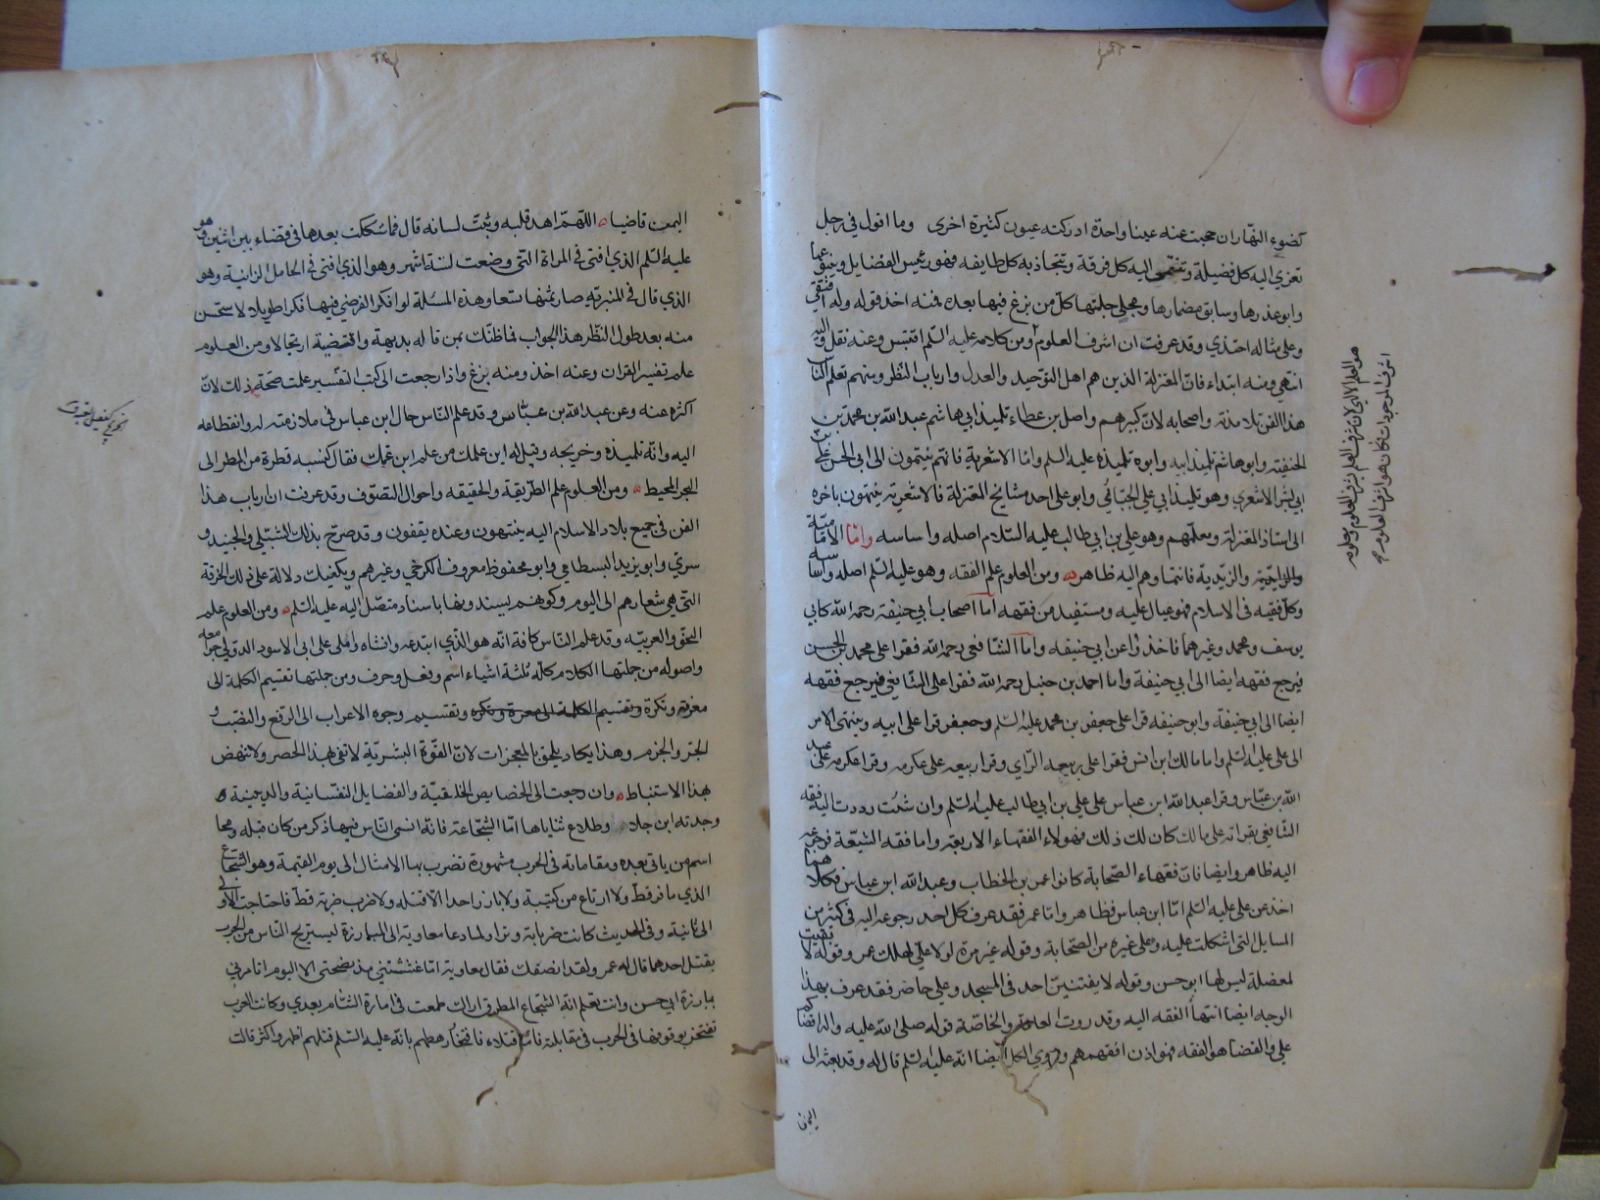 كضوء النهار ان حجبت عنه عينا واحدة ادركته عيون كثيرة اخرى وما اقول في رجل
تعزي اليه كل فضيلة وتنتمى اليه كل فرقة وتتجاذبه كل طايفه فهو رئيس الفضايل وينبوعها
وابو عذرها وسابق مضمارها ومجلي حلبتها كل من بزغ فيها بعده فمنه اخذ وله اقتفى
وعلى مثاله احتذي وقد عرفت ان اشرف العلوم ومن كلامه عليه السلم اقتبس وعنه نقل واليه
انتهى ومنه ابتداء فان المعتزلة الذين هم اهل التوحيد والعدل وارباب النظر ومنهم تعلم الناس
هذا الفن تلامذته واصحابه لان كبيرهم واصل بن عطاء تلميذ ابي هاشم عبد الله بن محمد بن
الحنفيه وابو هاشم تلميذ ابيه وابوه تلميذه عليه السلم واما الاشعرية فانهم ينتمون الى ابى الحسن علي بن
ابي بشر الاشعري وهو تلميذ ابي علي الجبائي وابو على احد مشايخ المعتزلة فالاشعرية ينتمون باخره
الى استاذ المعتزلة ومعلمهم وهو علي بن ابي طالب عليه السلام اصله واساسه واما الامامية
والزيدية فانتماوهم اليه ظاهر ومن العلوم علم الفقه وهو عليه السلم اصله واساسه
وكل فقيه فى الاسلام فهو عيال عليه ومستفيد من فقهه اما اصحاب ابي حنيفة رحمه الله كابي
يوسف ومحمد وغيرهما فاخذوا عن ابي حنيفه واما الشافعى رحمه الله فقرا على محمد بن الحسن
فيرجع فقهه ايضا الى ابي حنيفة واما احمد بن حنبل رحمه الله فقرا على الشافعي فيرجع فقهه
ايضا الى ابي حنيفة وابو حنيفه قرا على جعفر بن محمد عليه السلم وجعفر قرا على ابيه وينتهى الامر
الى على عليه السلم واما مالك ابن انس فقرا على ربيعه الراي وقرا ربيعه على عكرمه وقرا عكرمه على عبد
الله بن عباس وقرا عبد الله ابن عباس على علي بن ابي طالب عليه السلم وان شئت رددت اليه فقه
الشافعي بقراته على مالك كان لك ذلك فهولاء الفقهاء الاربعة واما فقه الشيعة فرجوعه
اليه ظاهر وايضا فان فقهاء الصحابة كانوا عمر بن الخطاب وعبد الله ابن عباس فكلاهما
اخذ عن على عليه السلم اما ابن عباس فظاهر واما عمر فقد عرف كل احد رجوعه اليه في كثير من
المسايل التى اشكلت عليه وعلى غيره من الصحابة وقوله غير مرة لولا علي لهلك عمر وقوله لا بقيت
لمعضلة ليس لها ابو حسن وقوله لا يفتين احد فى المسجد وعلي حاضر فقد عرف بهذا
الوجه ايضا انتهاء الفقه اليه وقد روت العامة والخاصة قوله صلى الله عليه واله اقضاكم
على والقضا هو الفقه فهو اذن افقههم وروي الكل ايضا انه عليه السلم قال له وقد بعثه الى
اليمن قاضيا اللهم اهد قلبه وثبت لسانه قال فما شككت بعدها فى قضاء بين اثنين وهو
عليه السلم الذي افتى في المراة التى وضعت لستة اشهر وهو الذي افتى في الحامل الزانية وهو
الذي قال في المنبرية صار ثمنها تسعا وهذه المسئلة لو افكر الفرضي فيها فكرا طويلا لاستحسن
منه بعد طول النظر هذا الجواب فما ظنك بمن قاله بديهة واقتضبه ارتجالا ومن العلوم
علم تفسير القران وعنه اخذ ومنه بزغ واذا رجعت الى كتب التفسير علمت صحة ذلك لان
اكثره عنه وعن عبد الله بن عباس وقد علم الناس حال ابن عباس فى ملازمته له وانقطاعه
اليه وانه تلميذه وخريجه وقيل له اين علمك من علم ابن عمك فقال كنسبه قطرة من المطر الى
البحر المحيط ومن العلوم علم الطريقة والحقيقه واحوال التصوف وقد عرفت ان ارباب هذا
الفن فى جميع بلاد الاسلام اليه ينتهون وعنده يقفون وقد صرح بذلك الشبلي والجنيد و
سري وابو يزيد البسطامي وابو محفوظ معروف الكرخي وغيرهم ويكفيك دلالة على ذلك الخرقة
التى هي شعارهم الى اليوم وكونهم يسندونها باسناد متصل اليه عليه السلم ومن العلوم علم
النحو والعربيه وقد علم الناس كافة انه هو الذي ابتدعه وانشاه واملى على ابى الاسود الدولي جوامعه
واصوله من جملتها الكلام كله ثلثة اشياء اسم وفعل وحرف ومن جملتها تقسيم الكلمة الى
معرفة ونكرة وتقسيم الكلمة الى معرفة ونكره وتقسيم وجوه الاعراب الى الرفع والنصب و
الجر والجزم وهذا يكاد يلحق بالمعجزات لان القوة البشرية لا تفى بهذا الحصر ولا تنهض
بهذا الاستنباط وان رجعت الى الخصايص الخلقية والفضايل النفسانية والدينية
وجدته ابن جلا وطلاع ثناياها اما الشجاعة فانه انسى الناس فيها ذكر من كان قبله ومحا
اسم من ياتى بعده ومقاماته فى الحرب مشهورة تضرب بها الامثال الى يوم القيمة وهو الشجاع
الذي ما فر قط ولا ارتاع من كتيبة ولا بارز احدا الا قتله ولا ضرب ضربة قط فاحتاجت الاولى
الى ثانية وفى الحديث كانت ضرباته وترا ولما دعا معاوية الى المبارزة ليستريح الناس من الحرب
بقتل احدهما قال له عمرو لقد انصفك فقال معاوية اما غششتني منذ نصحتنى الا اليوم اتامرني
بمبارزة ابي حسن وانت تعلم انه الشجاع المطرق اراك طمعت فى امارة الشام بعدي وكانت العرب
تفتخر بوقوفها فى الحرب فى مقابلته فاما قتلاه فافتخار رهطهم بانه عليه السلم قتلهم اظهر واكثر قالت